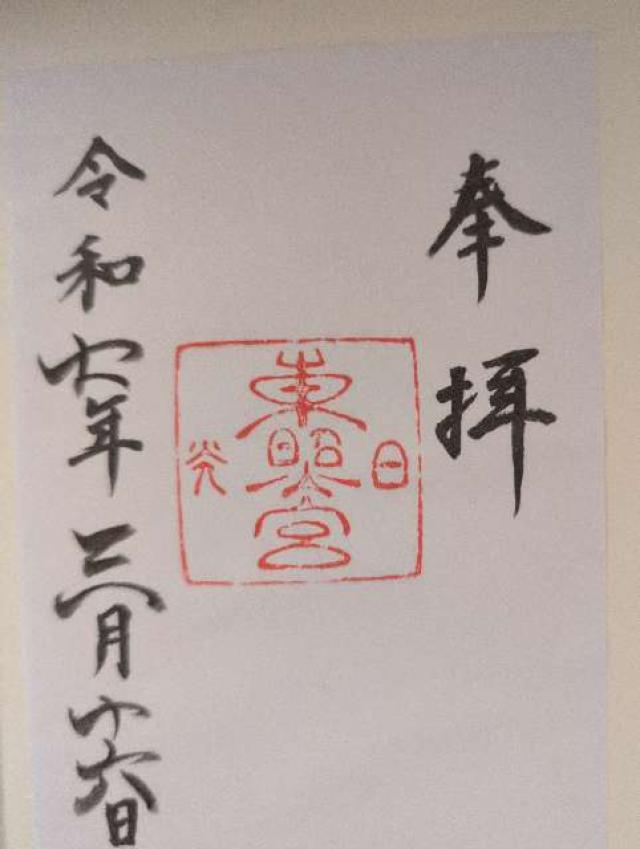 奉拝
日
東照宮
光
令和七年三月十六日